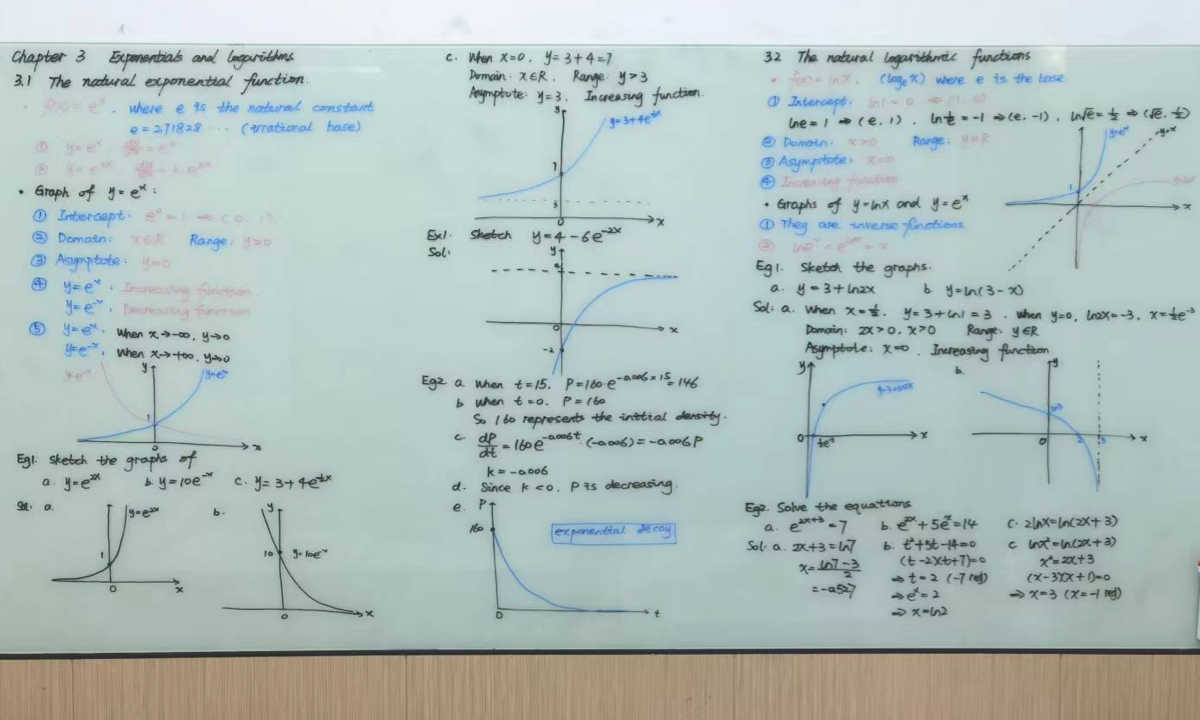 Chapter 3 Exponentials and logarithms
3.1 The natural exponential function.
· f(x) = eˣ, where e is the natural constant
e = 2.71828 ··· (irrational base)
① y = eˣ
• Graph of y = eˣ :
① Intercept: e⁰ = 1 ⇒ (0, 1)
② Domain: x∈R Range: y>0
③ Asymptote: y=0
④ y = eˣ, Increasing function
y = e⁻ˣ, Decreasing function
⑤ y = eˣ, when x→-∞, y→0
y = e⁻ˣ, when x→+∞, y→0
y=e⁻ˣ y y=eˣ
1
0 x
Eg1. Sketch the graphs of
a. y = e²ˣ b. y = 10e⁻ˣ c. y = 3 + 4e^(½x)
Sol: a. y=e²ˣ b. y
1 10 y=10e⁻ˣ
0 x
0 x
c. When x=0, y = 3+4 = 7
Domain: x∈R, Range: y>3
Asymptote: y=3, Increasing function.
y y=3+4e^(½x)
7
3
0 x
Ex1. Sketch y = 4 - 6e⁻²ˣ
Sol: y
4
0 x
-2
Eg2 a. When t=15, P=160·e^(-0.006×15)=146
b. When t=0, P=160
So 160 represents the initial density.
c. dP/dt = 160e^(-0.006t)·(-0.006) = -0.006P
k = -0.006
d. Since k<0, P is decreasing.
e. P
160 exponential decay
0 t
3.2 The natural logarithmic functions
• f(x) = lnx, (logₑx) where e is the base
① Intercept: ln1 = 0 ⇒ (1, 0)
lne = 1 ⇒ (e, 1), ln 1/e = -1 ⇒ (e, -1), ln√e = ½ ⇒ (√e, ½)
② Domain: x>0 Range: y∈R
③ Asymptote: x=0
④ Increasing function
y=eˣ y=x
1
x
• Graphs of y=lnx and y=eˣ
① They are inverse functions.
② lneˣ = e^(lnx) = x
Eg1. Sketch the graphs.
a. y = 3 + ln2x b. y = ln(3-x)
Sol: a. When x=½, y = 3 + ln1 = 3. When y=0, ln2x=-3, x=½e⁻³
Domain: 2x>0, x>0 Range: y∈R
Asymptote: x=0, Increasing function
y y=3+ln2x
0 ½e⁻³ x
b. y
ln3
0 2 3 x
Eg2. Solve the equations
a. e^(2x+3) = 7 b. e²ˣ + 5eˣ = 14 c. 2lnx = ln(2x+3)
Sol: a. 2x+3 = ln7 b. t²+5t-14=0 c. lnx² = ln(2x+3)
x = (ln7-3)/2 (t-2)(t+7)=0 x² = 2x+3
= -0.527 ⇒ t=2 (-7 rej) (x-3)(x+1)=0
⇒ eˣ=2 ⇒ x=3 (x=-1 rej)
⇒ x=ln2